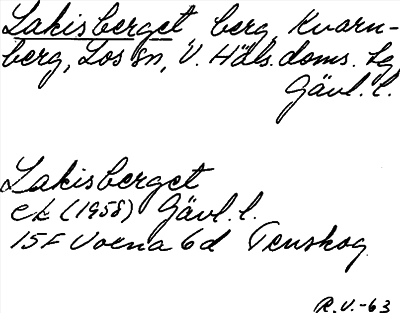 Lakisberget, berg, Kvarn-
berg, Los sn, V. Häls. doms. lg
Gävl. l.
Lakisberget
ek (1958) Gävl. l.
15F Voxna 6d Tenskog
R.V.-63